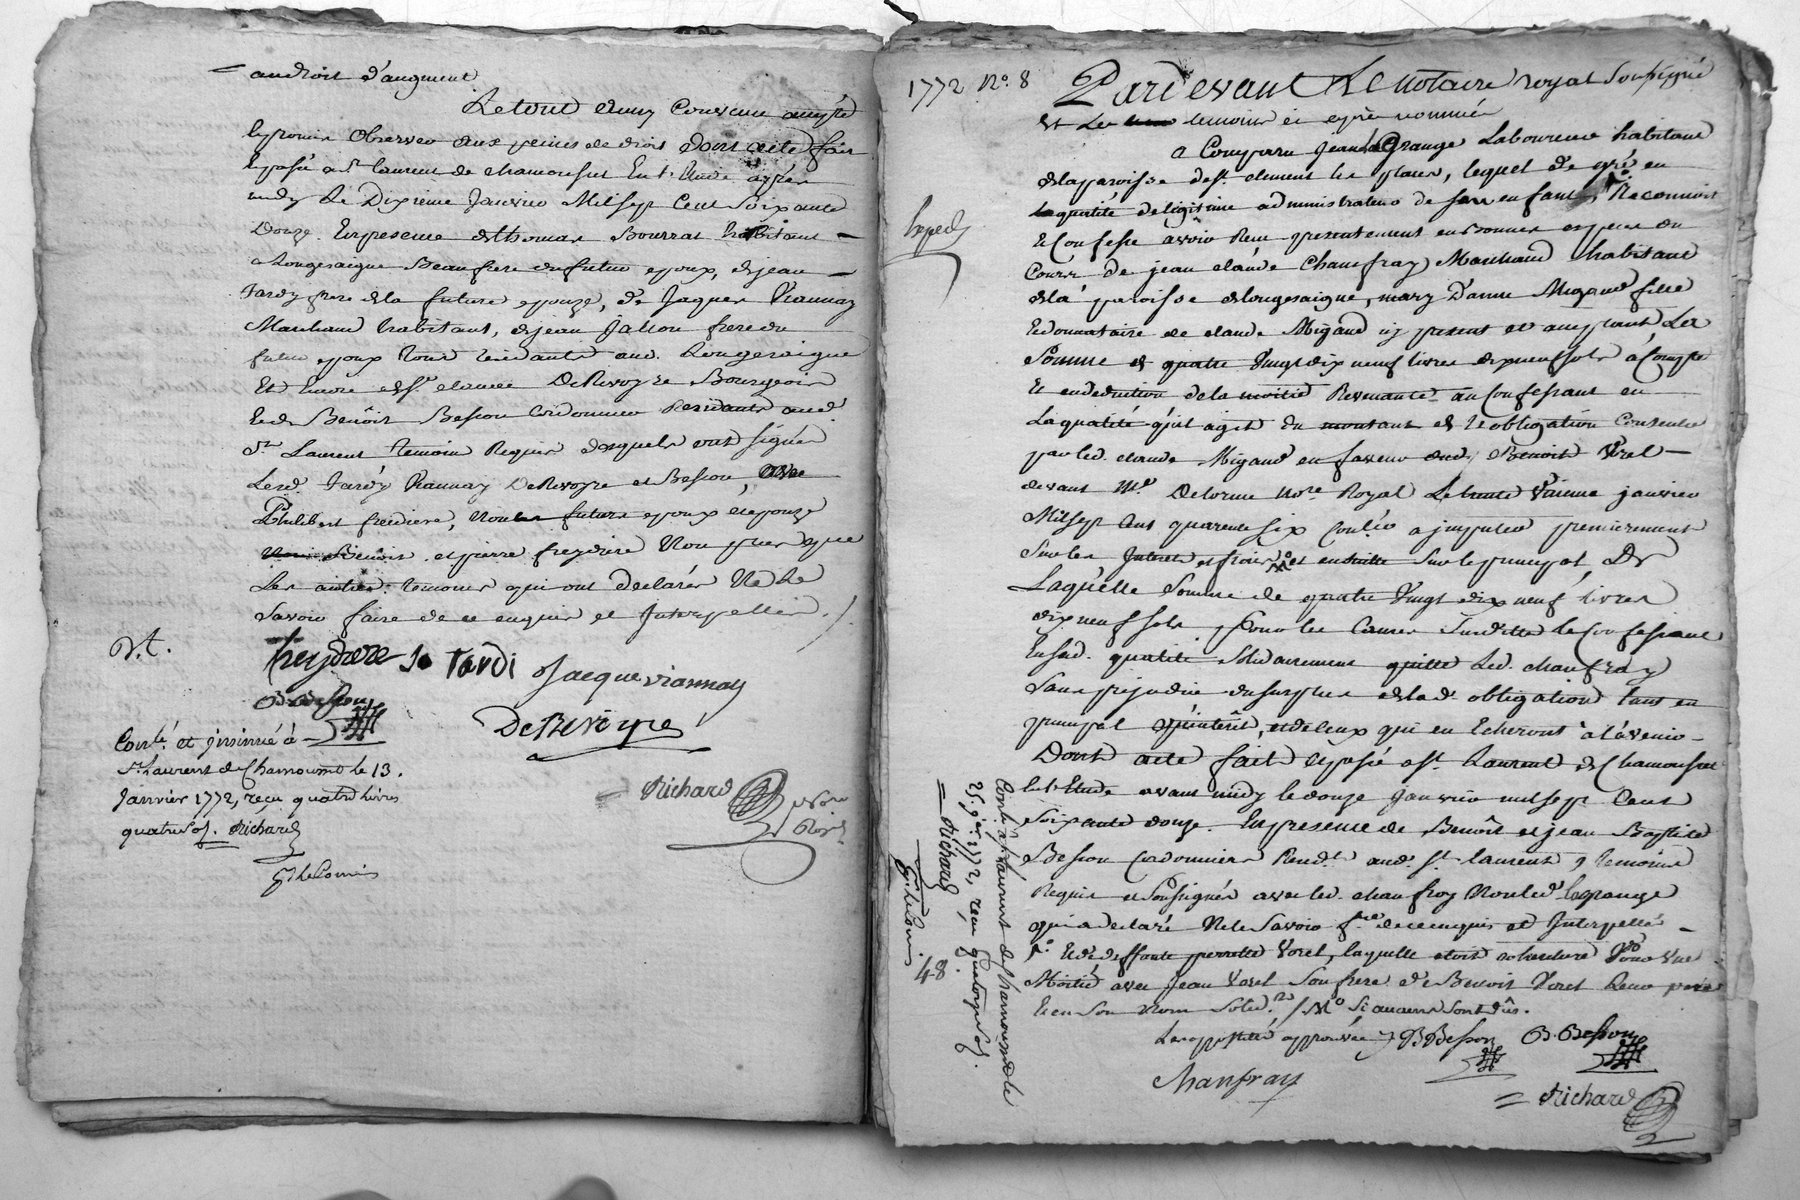 au droit d'augment
Le tout ainsy convenu accepté
et promis observer aux peines de droit dont acte fait
et passé a St laurent de chamousset en l'étude après
midy Le Dixieme Janvier Mil sept Cent Soixante
Douze. En presence de thomas Bourrat habitant
a Longesaigne Beaufrere du futur epoux, de jean
Tardy frere de la future epouze, de Jaques Viannay
Marchand habitant, de jean jallon frere du
futur epoux tous residants aud. Longesaigne
Et Encore de Sr claude DeRivoyre Bourgeois
et de Benoit Besson Cordonnier Residants aud.
St Laurent temoins Requis desquels ont signés
Lesd. Tardy Viannay DeRivoyre et Besson, avec
Philibert freidiere, non les futurs epoux et epouze
Benoit et pierre freydiere Non plus que
Les autres temoins qui ont declarés Ne Le
Savoir faire de ce enquis et Interpellés ./.
V.t.
freydiere Jo Tardi Jacque viannay
B. Besson
DeRivoyre
Richard
No.re Roy.l
Con.lé et jnsinué à
St. Laurent de Chamousset le 13.
Janvier 1772, recu quatre livres
quatre sol. Richard
1772 No. 8 Pardevant Le notaire royal soussigné
et Les temoins ci après nommés
a Comparu Jean lagrange Laboureur habitant
de la paroisse de St. clement les places, lequel de gré en
la qualité de legitime administrateur de ses enfants Reconnoit
et Confesse avoir Recu presentement en bonnes especes du
Cours de jean claude Chanfray Marchand habitant
de la paroisse de longesaigne, mary d'anne Migaud fille
et donnataire de claude Migaud icy present et acceptant, La
Somme de quatre Vingt dix neuf livres dix neuf sols à Compte
et en deduction de la moitié Revenante au Confessant en
La qualité qu'il agit du montant de l'obligation Consentie
par led. claude Migaud en faveur de Benoit Vorel
devant Me. Delorme no.re Royal Le trente janvier
Mil sept Cent quarente six con.lée a jmputer premierement
Sur les Interets et frais et ensuitte Sur le principal, De
Laquelle Somme de quatre Vingt dix neuf livres
dix neuf sols, pour les Causes Susdittes le Confessant
en sad. qualité quitte Led. chanfray
Sans prejudice du surplus de lad. obligation tant en
principal qu'interêt, et de ceux qui en Echeront à l'avenir
Dont acte fait et passé a St. Laurent de Chamousset
en l'Etude avant midy le douze Janvier mil sept Cent
soixante douze. En presence de Benoit et jean Baptiste
Besson Cordonniers Resid.ts aud. St. laurent, temoins
Requis et Soussignés avec led. chanfray Non led. lagrange
qui a declaré Ne le Savoir f.re de ce enquis et Interpellé
et de deffunte pierrette Vorel, laquelle etoit coheritiere Pour une
Moitié avec Jean Vorel Son frere de Benoit Vorel Leur père
et en Son Nom / Si aucuns sont dûs.
Les appostilles approuvées B Besson B. Besson
Chanfray
Richard
Con.lé à St. Laurent de Chamousset le
25. j.er 1772, recu quatorze sol.
Richard
4-8.